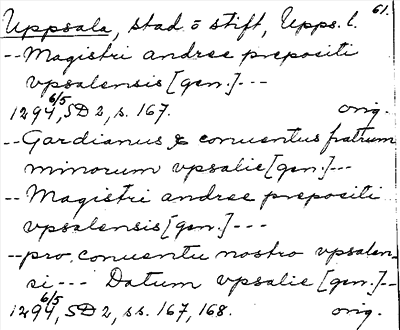 61.
Uppsala, stad o stift, Upps. l.
-- Magistri andree prepositi
vpsalensis [gen.] ---
1294 6/5, SD 2, s. 167. orig.
-- Gardianus & conuentus fratrum
minorum vpsalie [gen.] ---
-- Magistri andree prepositi
vpsalensis [gen.] ---
-- pro conuentu nostro vpsalen-
si --- Datum vpsalie [gen.] --
1294 6/5, SD 2, ss. 167, 168. orig.